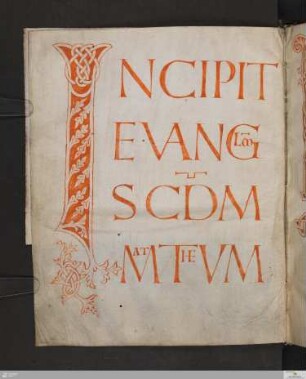 INCIPIT
EVANGLĪŪ
SCD̄M
MATTHEVM